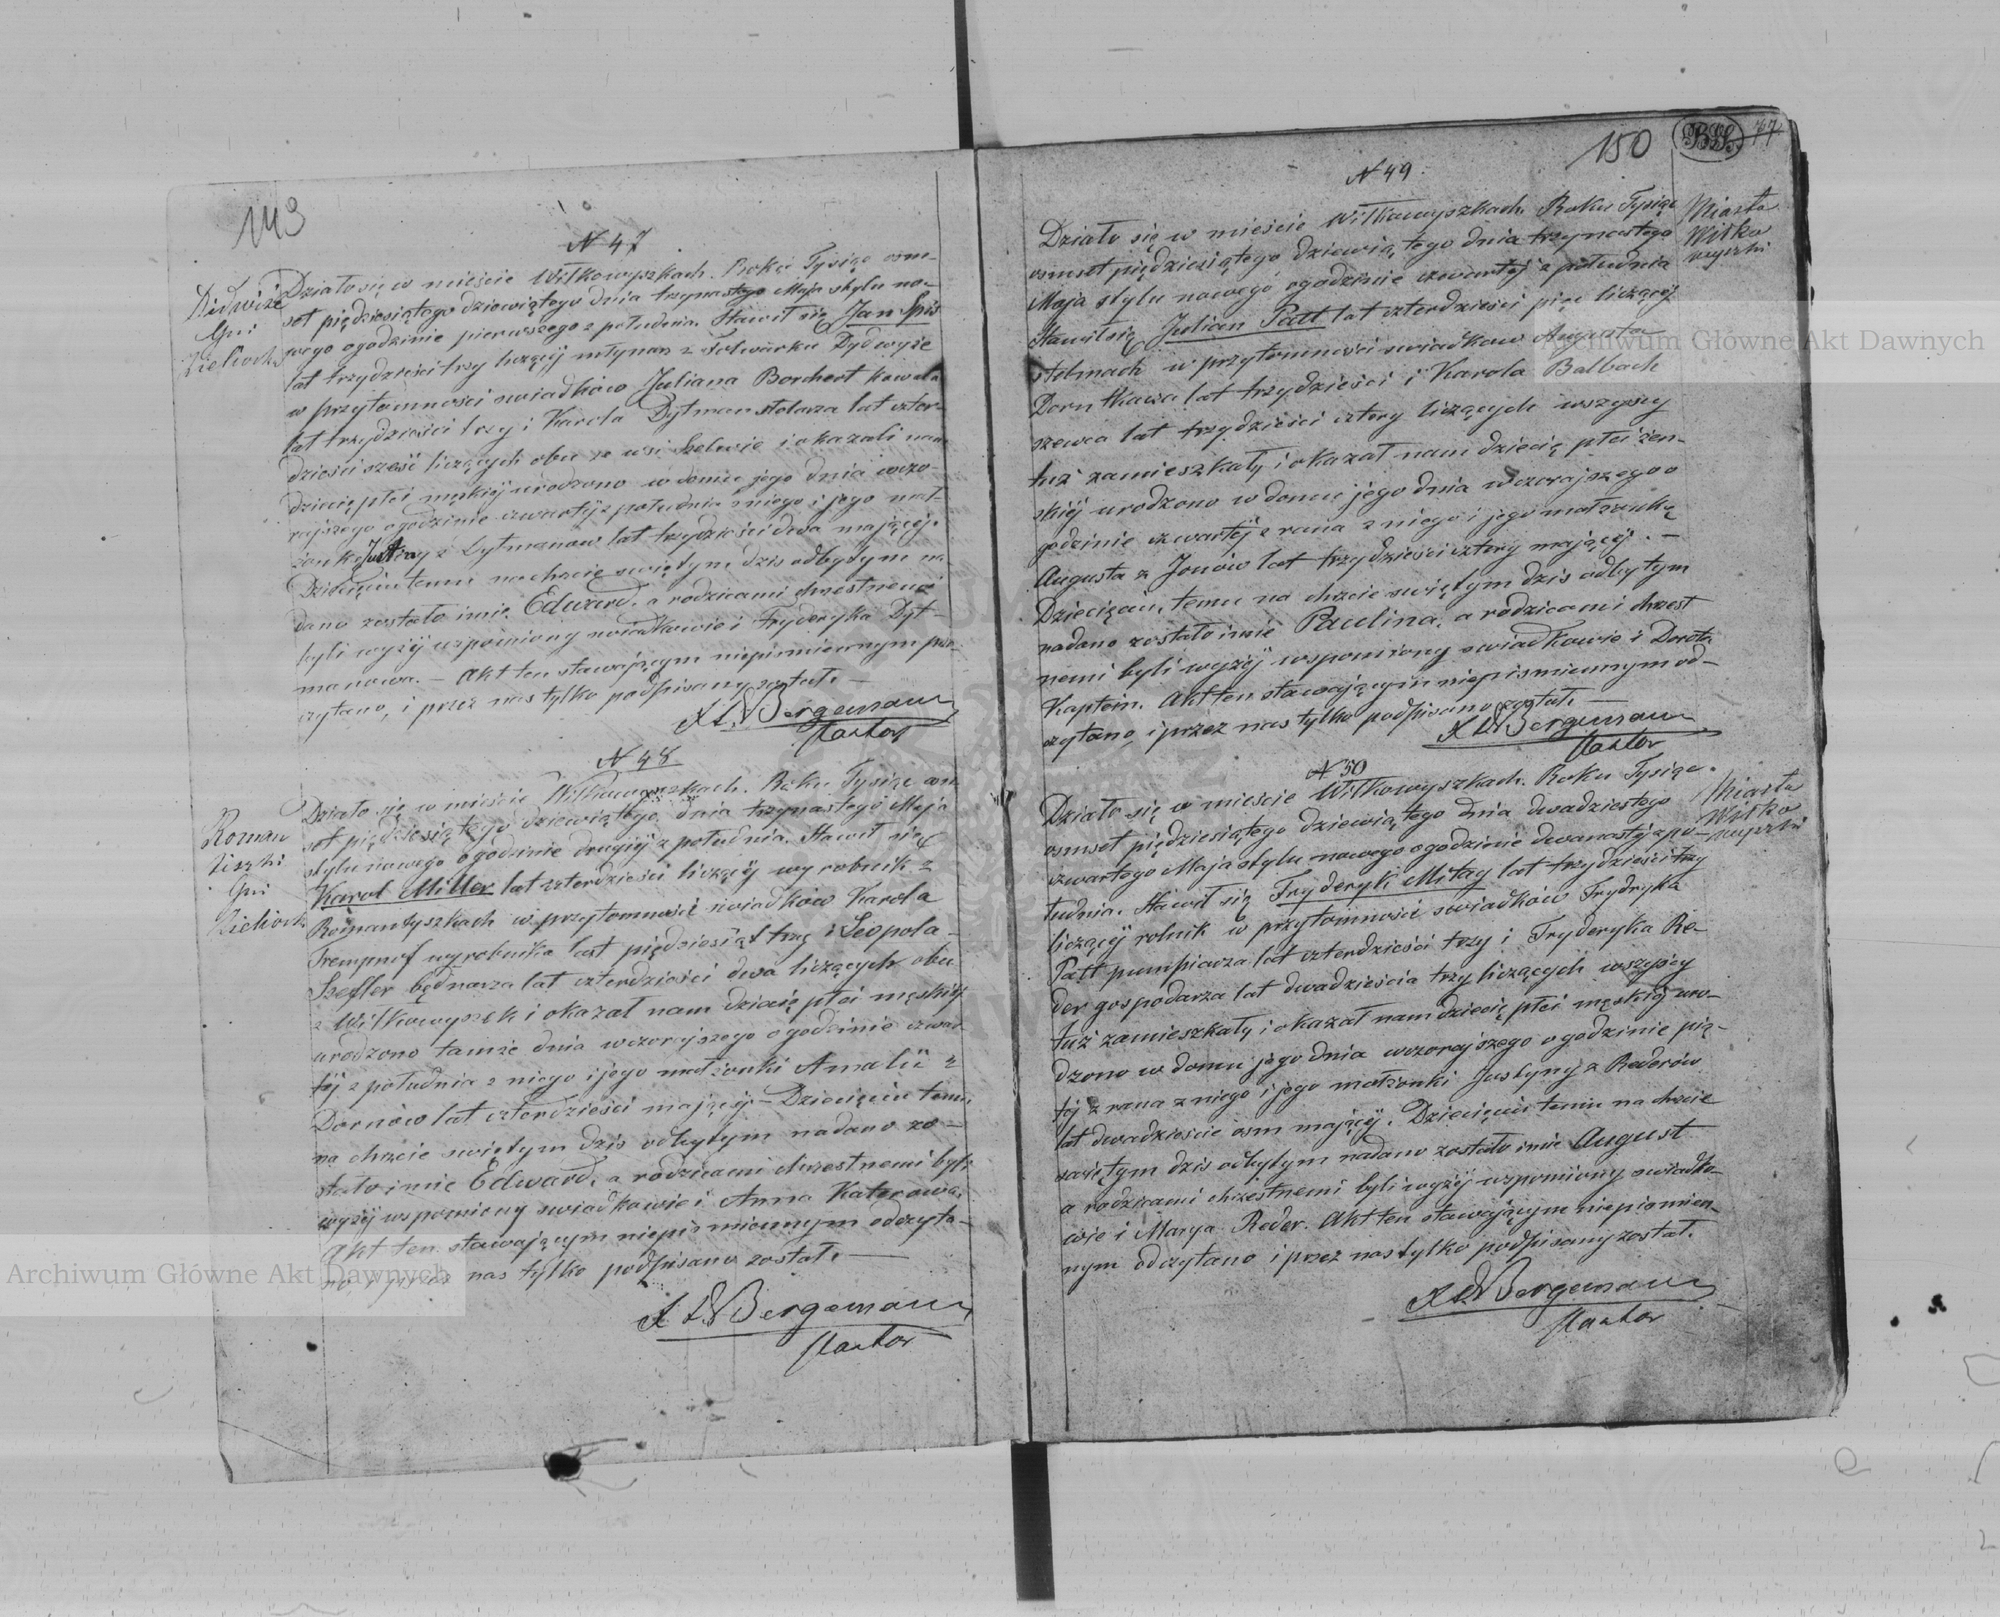 149
N 47
Dziwiże
Gm:
Zielionka
Działo się w mieście Wiłkowyszkach. Roku Tysiąc osm-
set pięćdziesiątego dziewiątego dnia trzynastego Maja stylu no-
wego o godzinie pierwszego z południa. Stawił się Jan Spis
lat trzydzieści trzy liczący młynarz z Folwarku Dydwyże
w przytomności swiadków Juliana Borchert kowala
lat trzydzieści trzy i Karola Dytman stolarza lat czter-
dzieści sześć liczących obu ze wsi Szelwie i okazali nam
dziecię płci męskiej urodzono w domu jego dnia wczo-
rajszego o godzinie czwartej z południa z niego i jego mał-
żonki Justyny z Dytmanow lat trzydzieści dwa mającej.
Dziecięciu temu na chrzcie świętym dzis odbytym na-
dano zostało imie Edward, a rodzicami chrzestnemi
byli wyżej wspomiony swiadkowie i Fryderyka Dyt-
manowa. — Akt ten stawającym niepismiennym prze-
czytano, i przez nas tylko podpisany został. —
K L Bergemann
Pastor
N 48
Roman
tiszki
Gm:
Zielionk
Działo się w mieście Wiłkowyszkach. Roku Tysiąc osm-
set pięćdziesiątego dziewiątego dnia trzynastego Maja
stylu nowego o godzinie drugiej z południa. Stawił się
Karol Miller lat czterdzieści liczący wyrobnik z
Romantyszkach w przytomności swiadków Karola
Trempnof wyrobnika lat pięćdziesiąt trzy i Leopola-
Szefler bednarza lat czterdzieści dwa liczących obu
z Wiłkowyszek i okazał nam dziecię płci męskiej
urodzono tamże dnia wczorajszego o godzinie czwar-
tej z południa z niego i jego małżonki Amalii z
Dornów lat czterdzieści mającej — Dziecięciu temu
na chrzcie świętym dzis odbytym nadano zo-
stało imie Edward, a rodzicami chrzestnemi byli
wyżej wspomiony swiadkowie i Anna Katerowa.
Akt ten stawającym niepismiennym odczyta-
no i przez nas tylko podpisano został. —
K L Bergemann
Pastor
150
77
N 49
Miasta
Wiłko
wyszki
Działo się w mieście Wiłkowyszkach. Roku Tysiąc
osmset pięćdziesiątego dziewiątego dnia trzynastego
Maja stylu nowego o godzinie czwartej z południa
Stawił się Julian Patt lat czterdzieści pięc liczący
stelmach w przytomności swiadkow Augusta
Dorn tkacza lat trzydzieści i Karola Balbach
szewca lat trzydzieści cztery liczących wszyscy
tuż zamieszkały i okazał nam dziecię płci żen-
skiej urodzono w domu jego dnia wczorajszego o
godzinie czwartej z rana z niego i jego małzonką
Augusta z Jonów lat trzydzieści cztery mającej. —
Dziecięciu temu na chrzcie świętym dzis odbytym
nadano zostało imie Paulina, a rodzicami chrzest
nemi byli wyżej wspomiony swiadkowie i Dorota
Kaptein. Akt ten stawającym niepismiennym od-
czytano, i przez nas tylko podpisano został. —
K L Bergemann
Pastor
N 50
Miasta
Wiłko
wyszki
Działo się w mieście Wiłkowyszkach. Roku Tysiąc
osmset pięćdziesiątego dziewiątego dnia dwadziestego
czwartego Maja stylu nowego o godzinie dwanastej z po-
łudnia. Stawił się Fryderyk Mitag lat trzydzieści trzy
liczący rolnik w przytomności swiadków Frydryka
Patt pumpiarza lat czterdzieści trzy i Fryderyka Re-
der gospodarza lat dwadzieścia trzy liczących wszyscy
tuż zamieszkały i okazał nam dziecię płci męskiej uro-
dzono w domu jego dnia wczorajszego o godzinie pią-
tej z rana z niego i jego małżonki Justyny z Rederów
lat dwadzieście osm mającej. Dziecięciu temu na chrzcie
świętym dzis odbytym nadano zostało imie August
a rodzicami chrzestnemi byli wyżej wspomiony swiadko-
wie i Marya Reder. Akt ten stawającym niepismien-
nym odczytano i przez nas tylko podpisany został.
K L Bergemann
Pastor
Archiwum Główne Akt Dawnych
Archiwum Główne Akt Dawnych